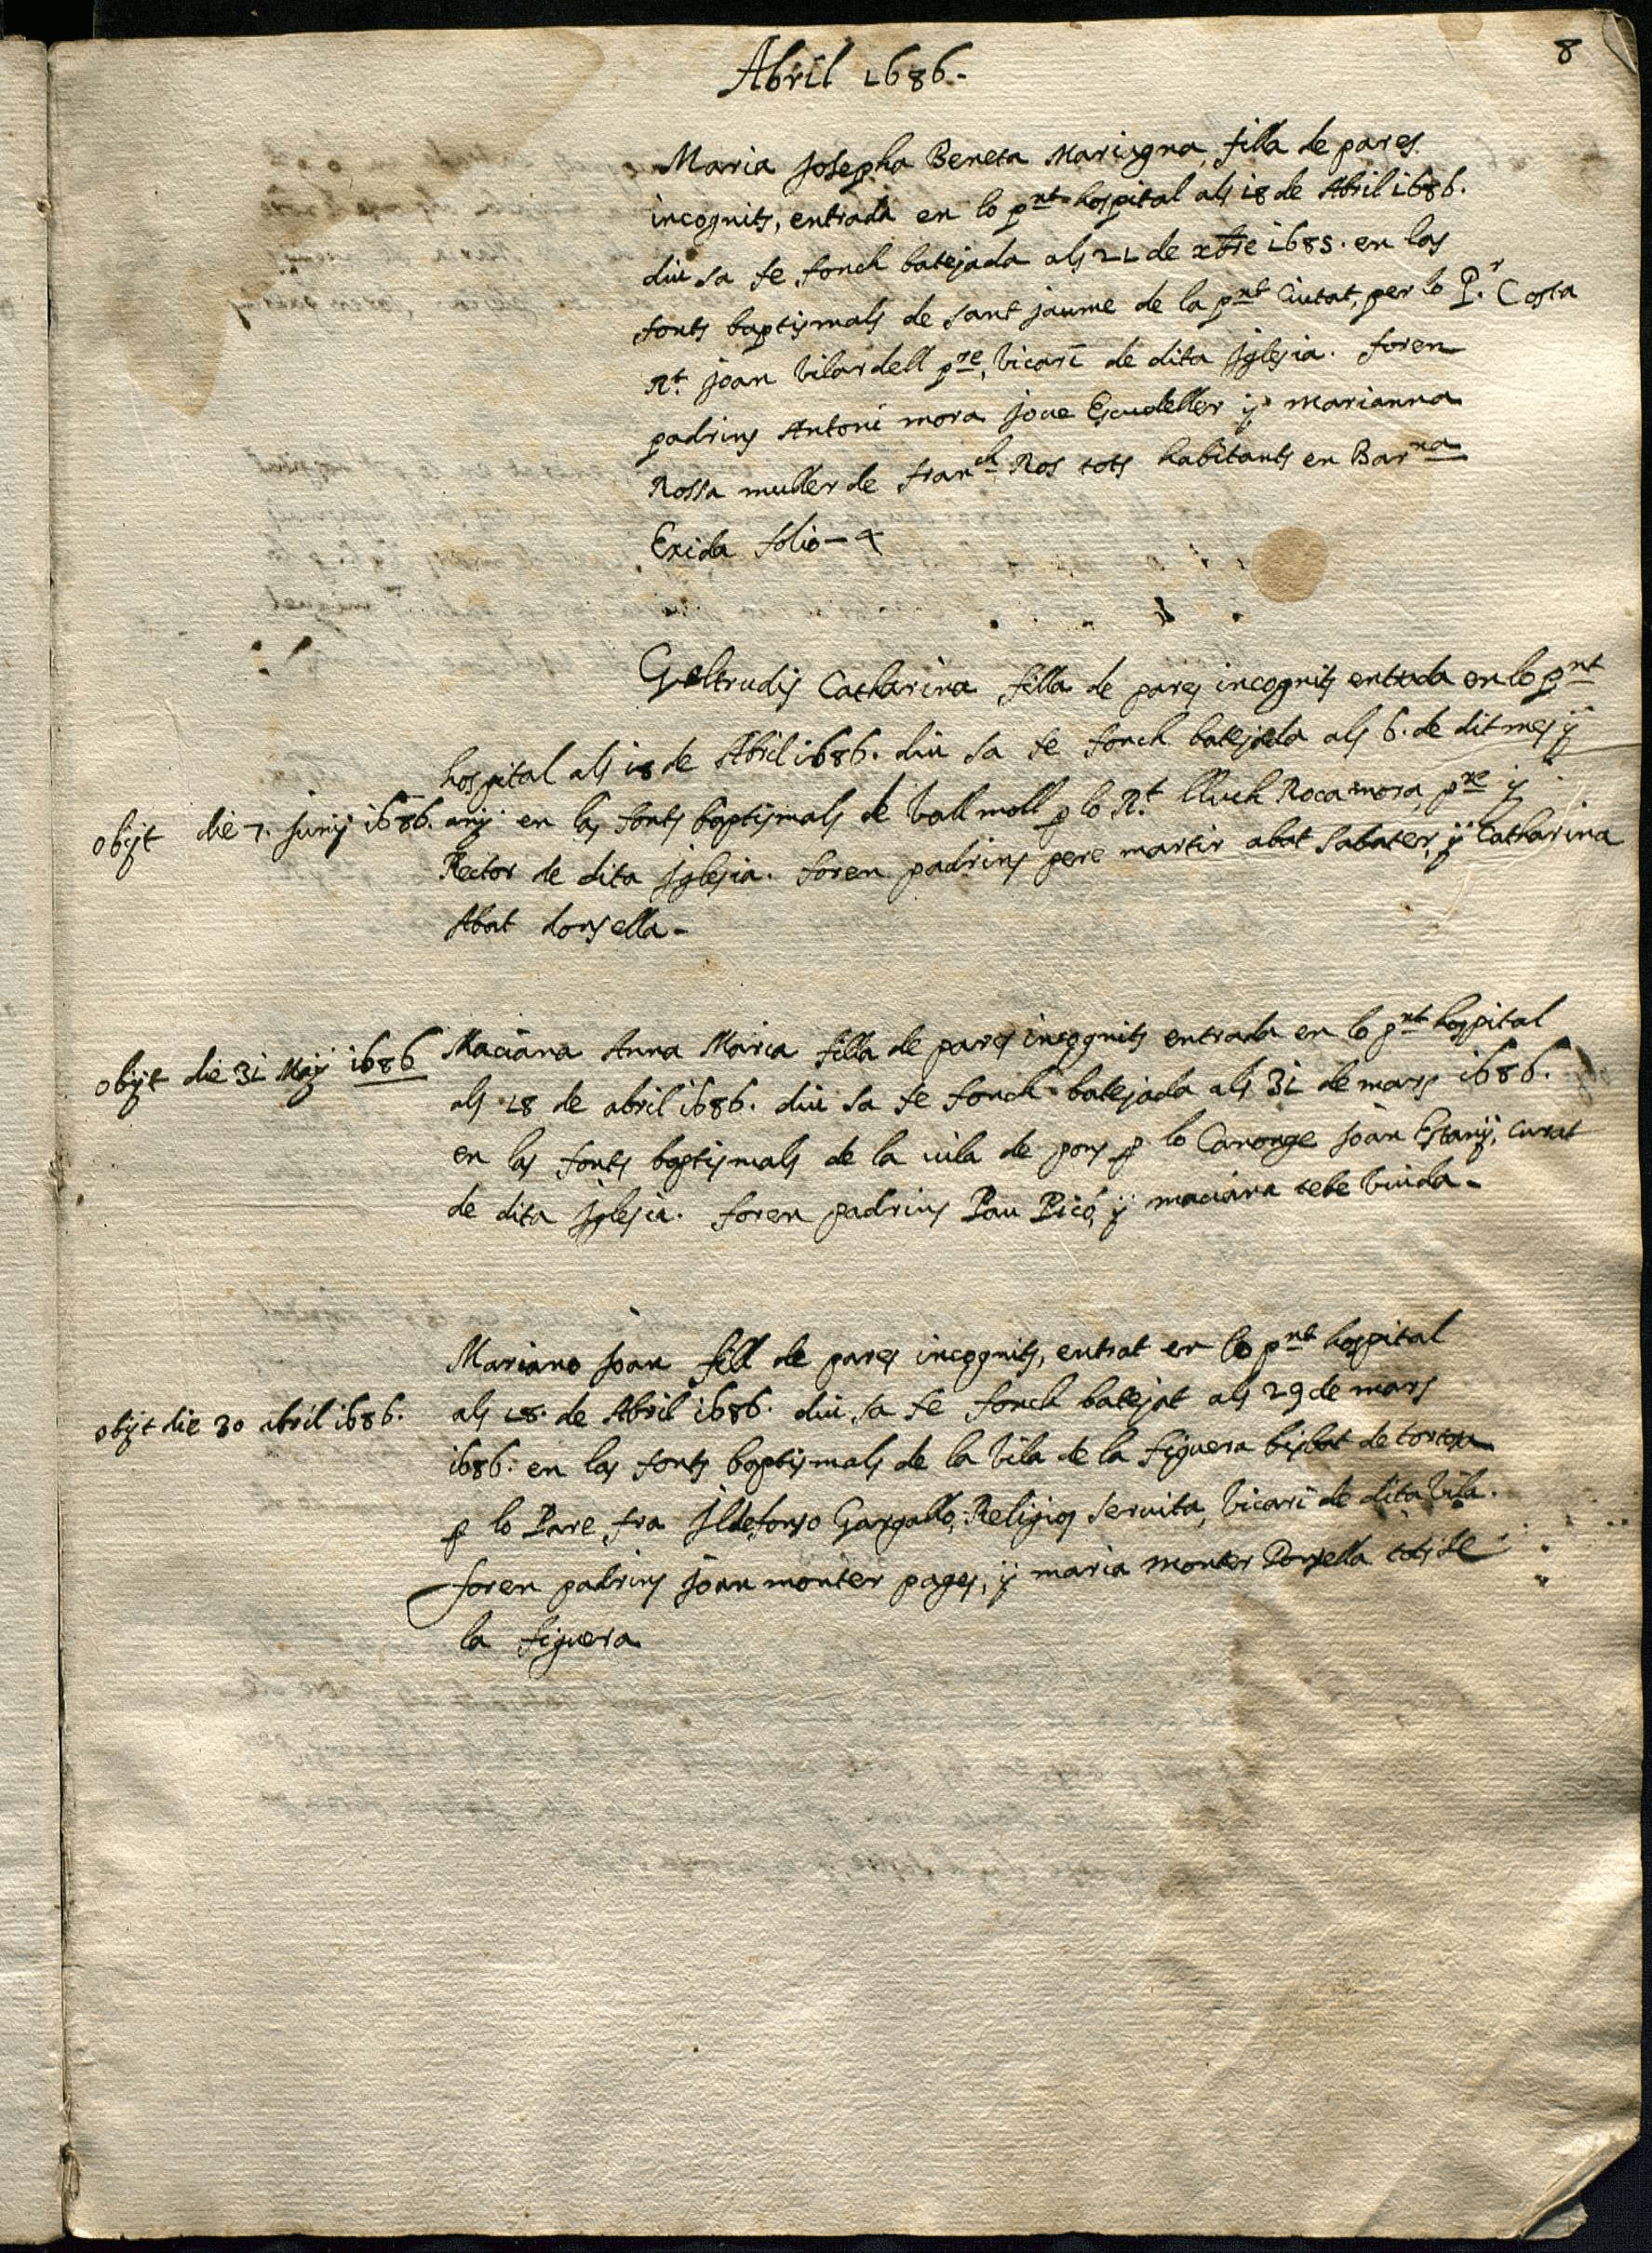 8
Abril 1686.
Maria Josepha Beneta Maringna, filla de pares
incognits, entrada en lo pnt hospital als 18 de Abril 1686.
diu sa fe fonch batejada als 21 de xbre 1685. en las
fonts baptismals de sant jaume de la pnt Ciutat, per lo Pr. Costa
Rt. joan Vilardell pre, Vicari de dita jglesia. foren
padrins Antoni mora joue Escudeller ÿ marianna
Rossa muller de Franch Ros tots habitants en Barna
Exida folio - 4
Geltrudis Catharina filla de pares incognits entrada en lo pnt
hospital als 18 de Abril 1686. diu sa fe fonch batejada als 6. de dit mes ÿ
obijt die 7. junij 1686. anÿ en las fonts baptismals de Vallmoll p lo Rt. lluch Rocamora, pre ÿ
Rector de dita jglesia. foren padrins pere martir abat sabater, ÿ Catharina
Abat donsella -
obijt die 31 Maÿ 1686 Maciana Anna Maria filla de pares incognits entrada en lo pnt hospital
als 18 de abril 1686. diu sa fe fonch batejada als 31 de mars 1686.
en las fonts baptismals de la vila de pons p lo Canonge joan Estanÿ, curat
de dita jglesia. foren padrins Pau Picó, ÿ maciana tebe Viuda -
Mariano joan fill de pares incognits, entrat en lo pnt hospital
obijt die 30 abril 1686. als 18. de Abril 1686. diu sa fe fonch batejat als 29 de mars
1686. en las fonts baptismals de la Vila de la figuera bisbat de tortosa
p lo Pare fra jldefonso Gargallo, Religios seruita, Vicari de dita Vila.
foren padrins joan monter pages, ÿ maria monter Donsella tots de
la figuera